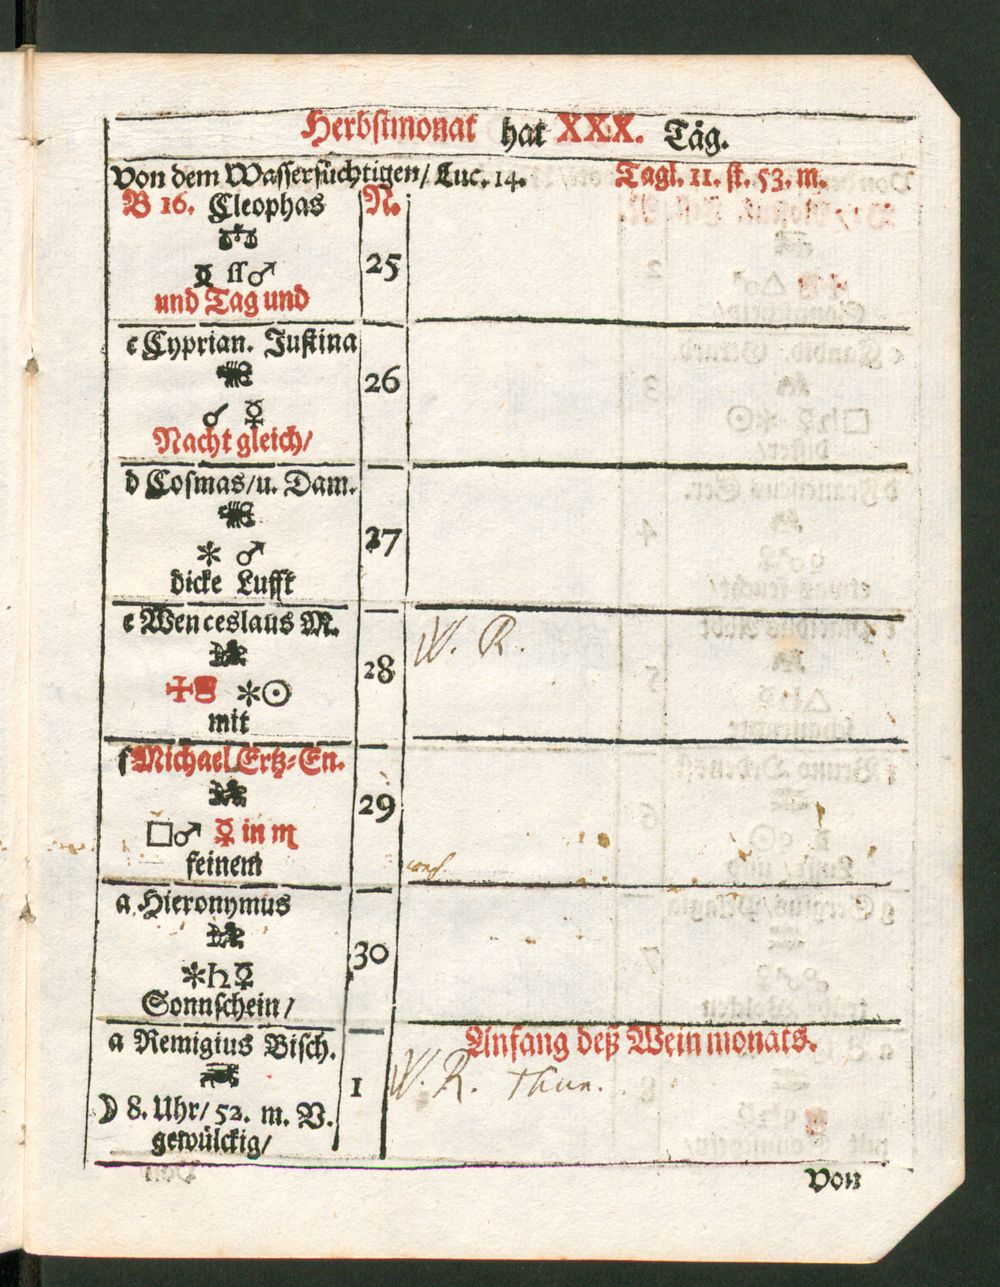 Herbstmonat hat XXX. Täg.
Von dem Wassersüchtigen/ Luc. 14. Tagl. 11. st. 53. m.
B 16. Cleophas N.
☿ ſſ ♂ 25
und Tag und
c Cyprian. Justina
26
☌ ☿
Nacht gleich/
d Cosmas/ u. Dam.
27
✻ ♂
dicke Lufft
e Wenceslaus M. W. R.
28
✻☉
mit
f Michael Ertz-En.
29
□♂ ☿ in ♏
feinem
a Hieronymus
30
✻♄☿
Sonnschein/
Anfang deß Weinmonats.
a Remigius Bisch.
W. R. Thun.
1
☽ 8. Uhr/ 52. m. V.
gewülckig/
Von